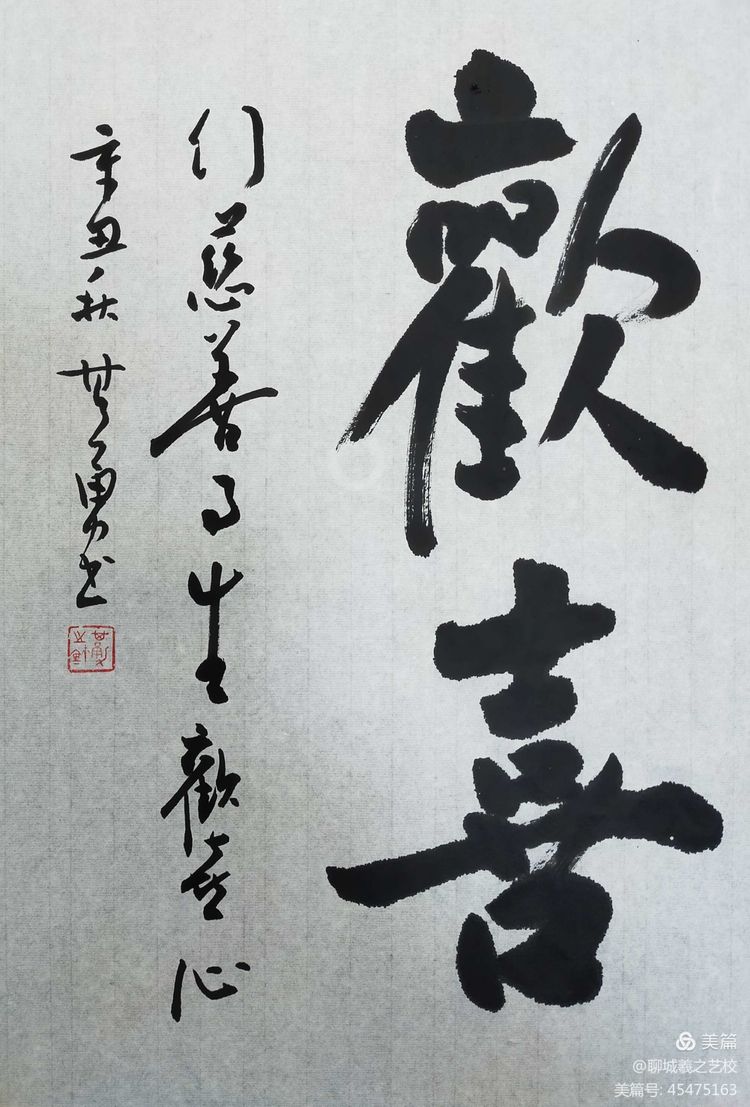 歡喜
行慈善事生歡喜心
辛丑秋 樊勇书
美篇
@聊城羲之艺校
美篇号: 45475163